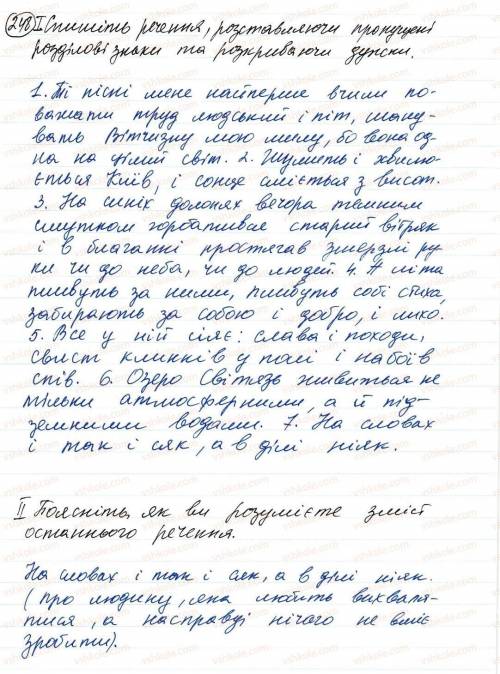 248 I Спишіть речення, розставляючи пропущені
розділові знаки та розкриваючи дужки.
1. Ті пісні мене найперше вчили по-
важати труд людський і піт, шану-
вать Вітчизну мою милу, бо вона од-
на на цілий світ. 2. Шумить і хвилю-
ється Київ, і сонце сміється з висот.
3. На синіх долонях вечора темним
смутком горбатився старий вітряк
і в благанні простягав змерзлі ру-
ки чи до неба, чи до людей. 4. А літа
пливуть за ними, пливуть собі стиха,
забирають за собою і добро, і лихо.
5. Все у ній сіяє: слава і походи,
свист клинків у полі і набоїв
спів. 6. Озеро Світязь живиться не
тільки атмосферними, а й під-
земними водами. 7. На словах
і так і сяк, а в ділі ніяк.
II Поясніть, як ви розумієте зміст
останнього речення.
На словах і так і сяк, а в ділі ніяк.
(про людину, яка любить вихваля-
тися, а насправді нічого не вміє
зробити).